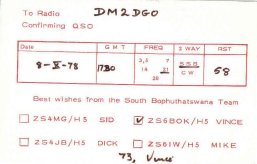 To Radio DM2DGO
Confirming QSO
Date GMT FREQ 2 WAY RST
8-X-78 1730 3,5 7 14 21 28 SSB CW 58
Best wishes from the South Bophuthatswana Team
ZS4MG/H5 SID ZS6BOK/H5 VINCE
ZS4JB/H5 DICK ZS6IW/H5 MIKE
73, Vince